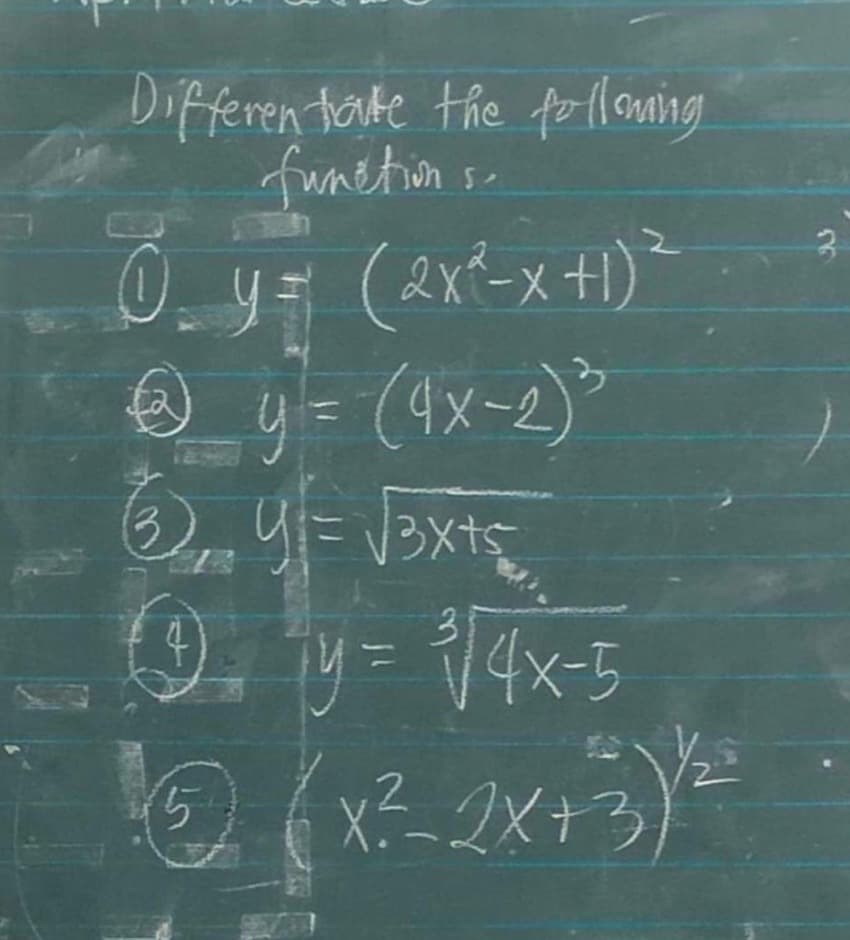 Differentiate the following
functions.
① y = (2x²-x+1)²
② y = (4x-2)³
③ y = √3x+5
④ y = ³√4x-5
⑤ (x²-2x+3)^1/2